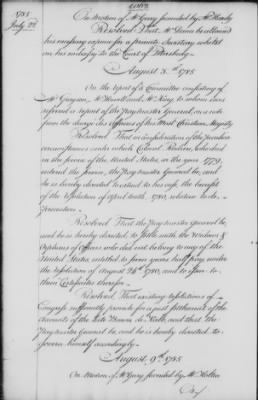 1785
July 22d
On Motion of Mr Gerry seconded by Mr Hardy
Resolved That Mr Dana be allowed
his necessary expence for a private Secretary whilst
on his embassy to the Court of Petersburg.
August 8th 1785
On the report of a Committee consisting of
Mr Grayson, Mr Howell and Mr King, to whom were
referred a report of the Paymaster General, on a note
from the charge des affaires of his Most Christian Majesty
Resolved That in consideration of the peculiar
circumstances under which Colonel
died in the service of the United States, in the year 1779,
entered the service, the Paymaster General be, and
he is hereby directed to extend to his case, the benefit
of the resolution of April 10th 1780, relative to de-
preciation.
Resolved That the Paymaster General be,
and he is hereby directed to settle with the Widows &
Orphans of Officers who did not belong to any of the
United States, entitled to seven years half pay under
the resolution of August 24th 1780, and to issue to
them Certificates therefor.
Resolved That existing resolutions of
Congress sufficiently provide for a just settlement of the
Accounts of the late Baron de Kalb, and that the
Paymaster General be and he is hereby directed to
govern himself accordingly.
August 9th 1785
On Motion of Mr Gerry seconded by Mr Holten